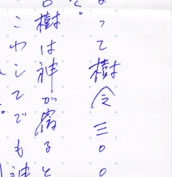 って樹令三〇〇
樹は神が宿ると
こわしてでも神